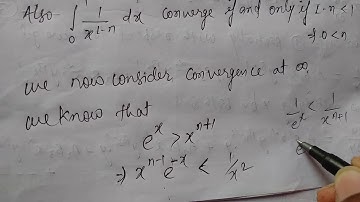 Also ∫₀¹ 1/x^{1-n} dx converge if and only if 1-n<1
⇒ 0<n
we now consider convergence at ∞
we know that
e^x > x^{n+1}
⇒ x^{n-1} e^{-x} < 1/x²
1/e^x < 1/x^{n+1}
e